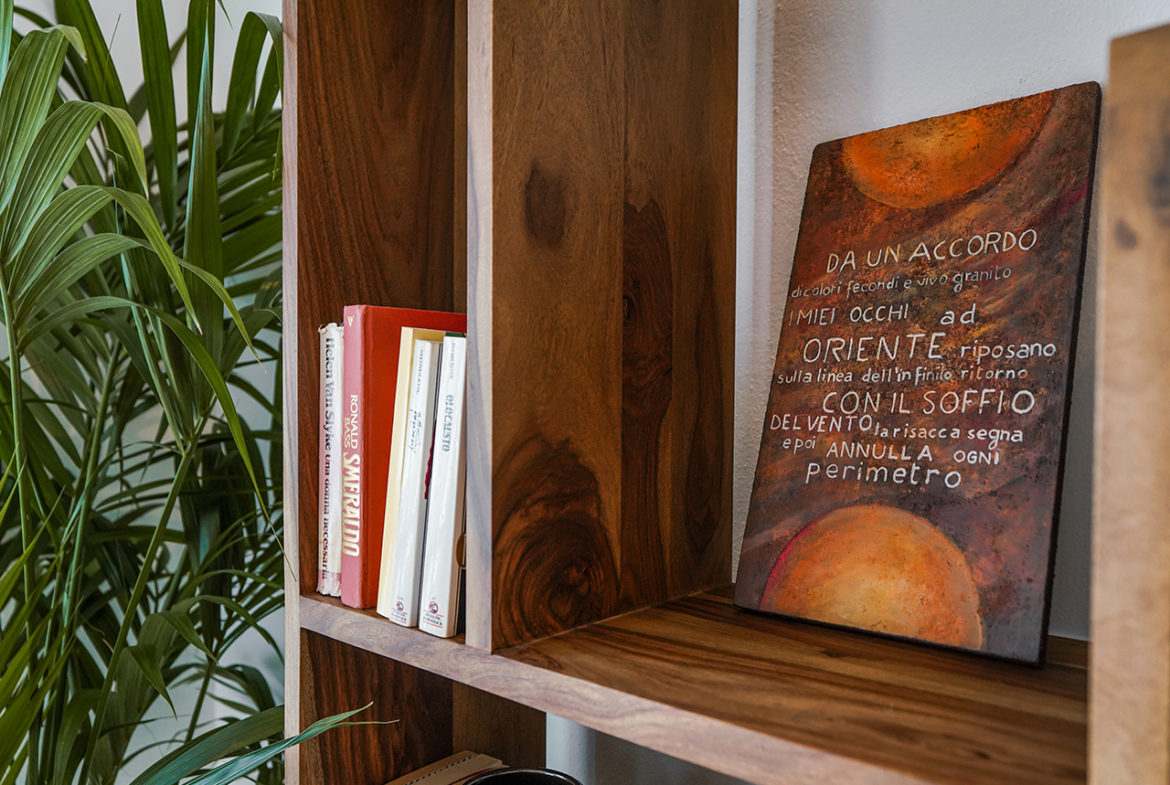 Helen Van Slyke Una donna necessaria
RONALD BASS SMERALDO
OLOCAUSTO
DA UN ACCORDO
di colori fecondi e vivo granito
I MIEI OCCHI ad
ORIENTE riposano
sulla linea dell'infinito ritorno
CON IL SOFFIO
DEL VENTO la risacca segna
e poi ANNULLA OGNI
perimetro